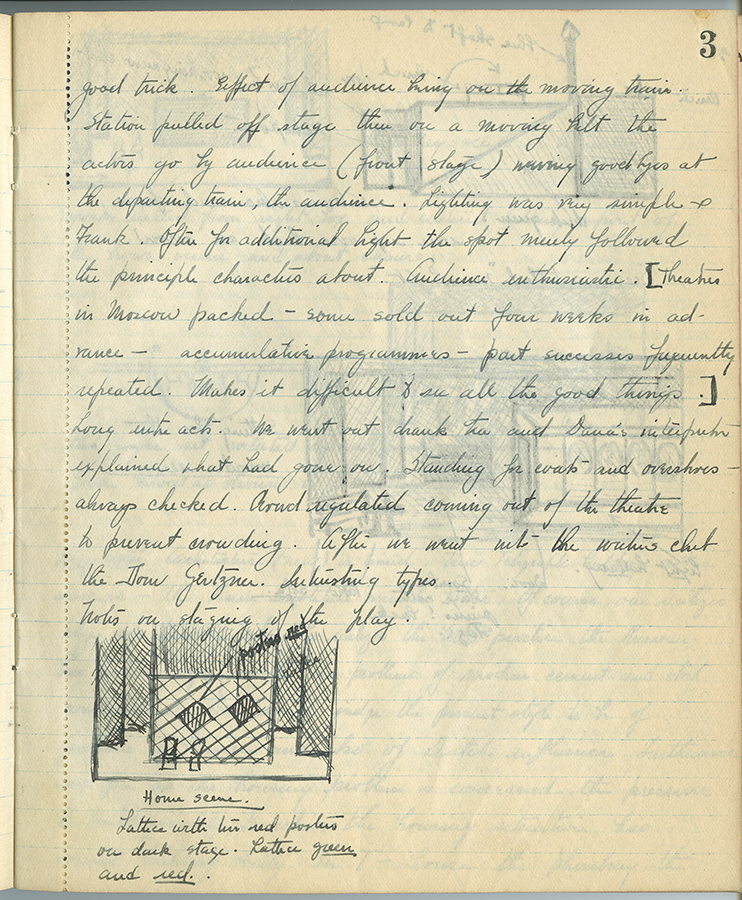 3
good trick. Effect of audience being on the moving train.
Station pulled off stage then on a moving belt the
actors go by audience (front stage) waving goodbyes at
the departing train, the audience. Lighting was very simple &
Frank. Often for additional light the spot merely followed
the principle characters about. Audience enthusiastic. [Theatres
in Moscow packed – some sold out four weeks in ad-
vance – accumulative programmes – past successes frequently
repeated. Makes it difficult to see all the good things.]
Long entre acts. We went out drank tea and Dana's interpreter
explained what had gone on. Standing for coats and overshoes –
always checked. Crowd regulated coming out of the theatre
to prevent crowding. After we went into the writers club
the Dom Gertzner. Interesting types.
Notes on staging of the play.
posters red
Home scene.
Lattice with two red posters
on dark stage. Lattice green
and red.